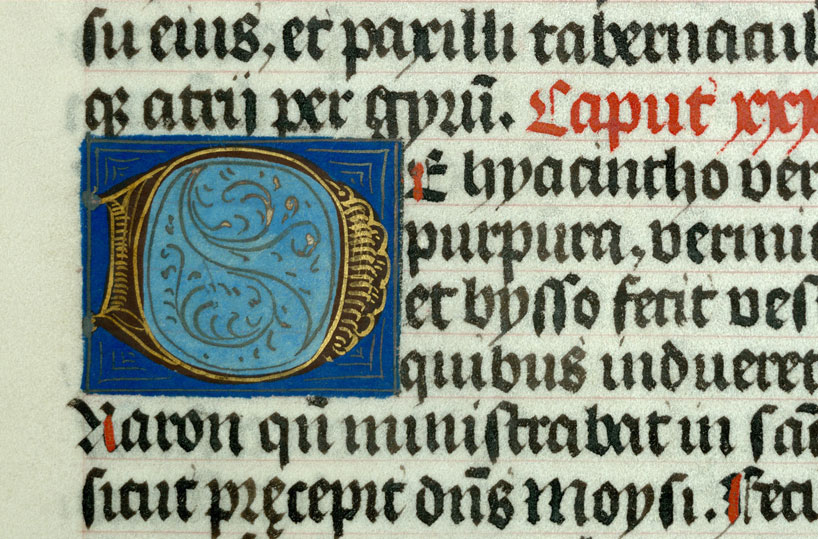 su eius, et paxilli tabernacul
qꝫ atrij per gyrū. Caput xxx
DE hyacintho ver
purpura, vermi
et bysso fecit ves
quibus indueret
Aaron qn̄ ministrabat in san
sicut pręcepit dn̄s Moysi. Feci